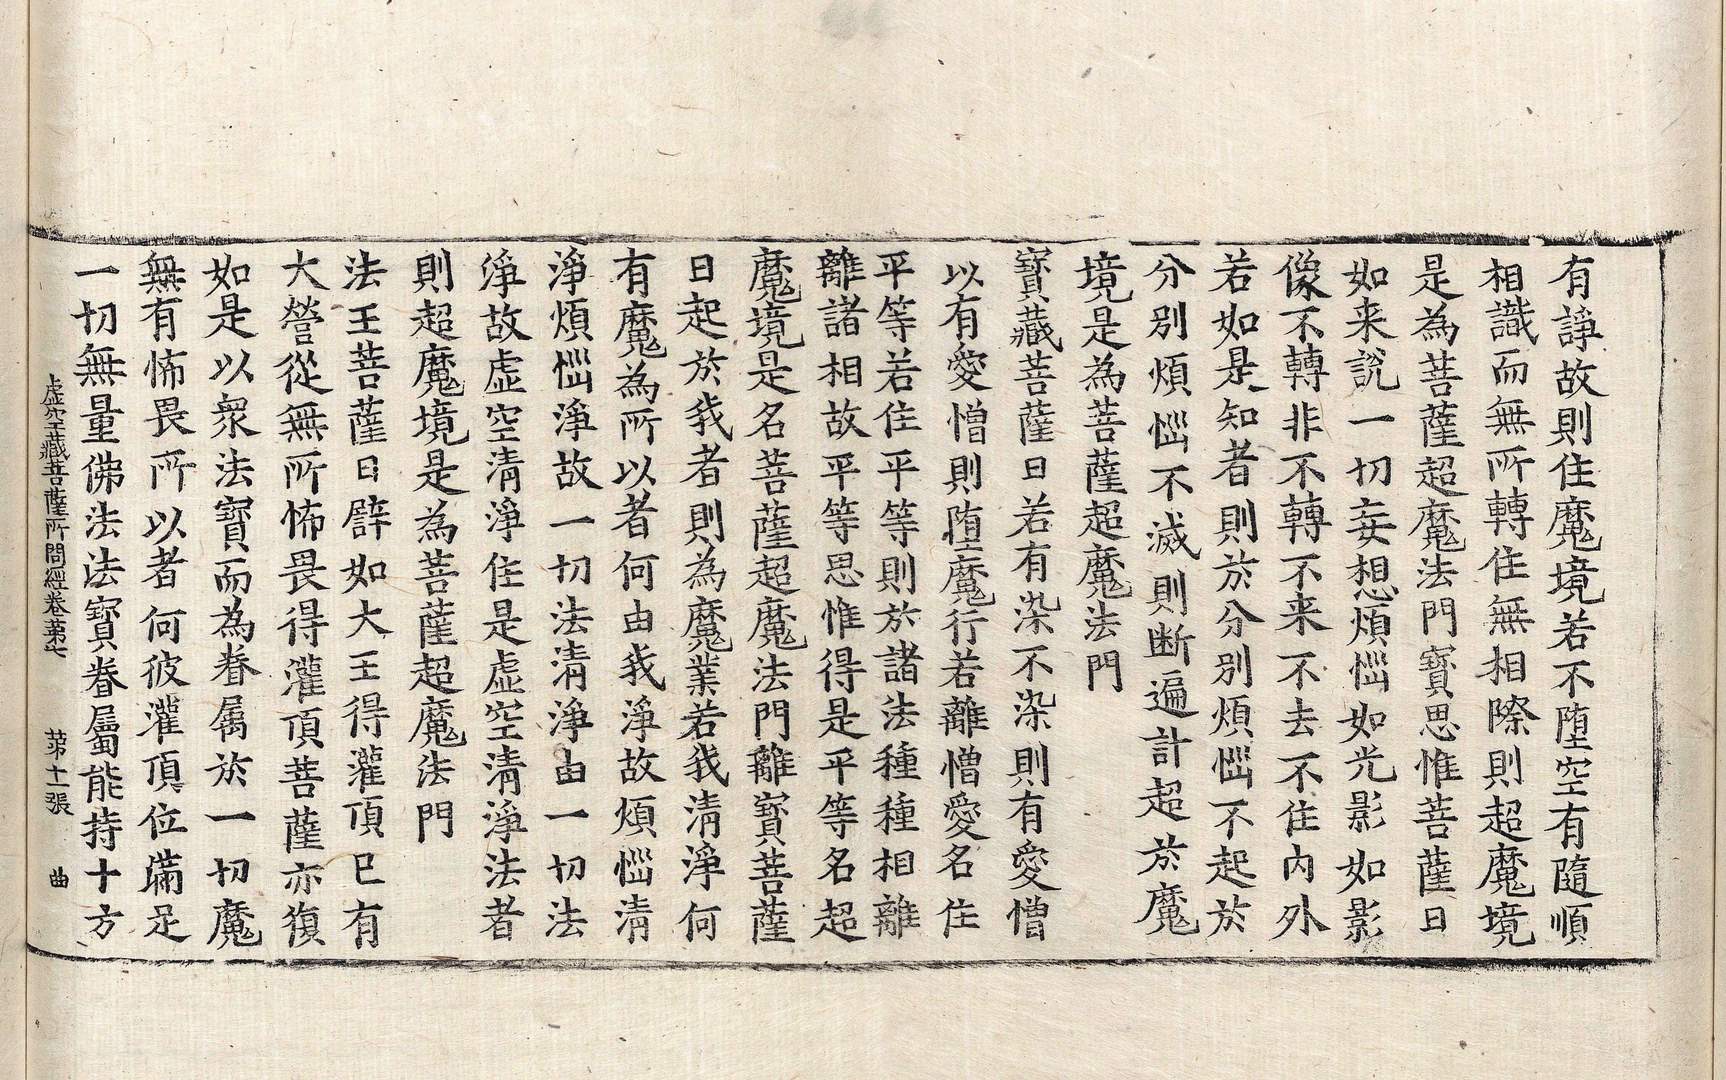 有諍故則住魔境若不堕空有隨順
相識而無所轉住無相際則超魔境
是為菩薩超魔法門寶思惟菩薩曰
如来説一切妄想煩惱如光影如影
像不轉非不轉不来不去不住内外
若如是知者則於分別煩惱不起於
分別煩惱不滅則断遍計超於魔
境是為菩薩超魔法門
寶藏菩薩曰若有染不染則有愛憎
以有愛憎則堕魔行若離憎愛名住
平等若住平等則於諸法種種相離
離諸相故平等思惟得是平等名超
魔境是名菩薩超魔法門離寶菩薩
曰起於我者則為魔業若我清淨何
有魔為所以者何由我淨故煩惱清
淨煩惱淨故一切法清淨由一切法
淨故虛空清淨住是虛空清淨法者
則超魔境是為菩薩超魔法門
法王菩薩曰譬如大王得灌頂已有
大營從無所怖畏得灌頂菩薩亦復
如是以衆法寶而為眷屬於一切魔
無有怖畏所以者何彼灌頂位滿足
一切無量佛法法寶眷屬能持十方
虛空藏菩薩所問經卷第七 第十一張 曲